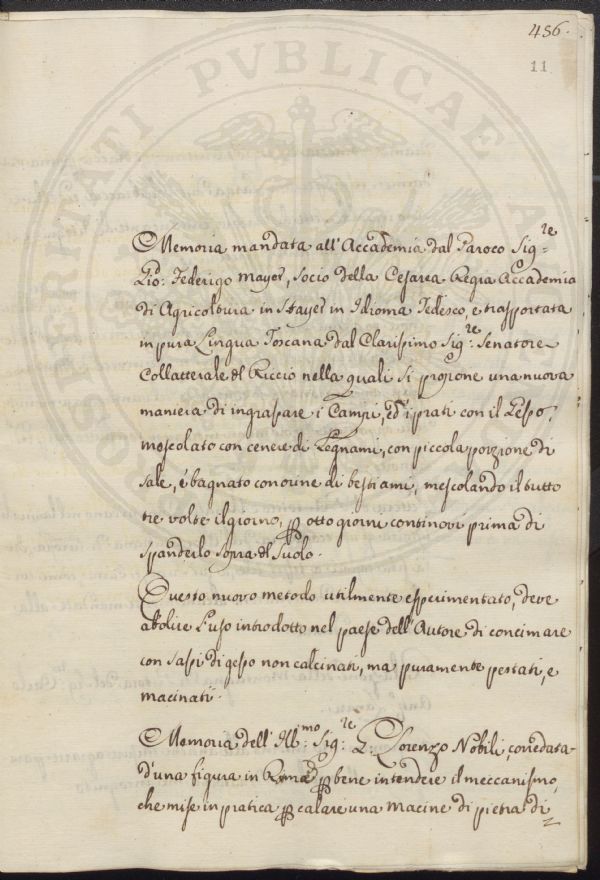 456.
11
PROSPERITATI PVBLICAE AVGENDAE
Memoria mandata all'Accademia dal Paroco Sig.re
Gio: Federigo Mayer, Socio della Cesarea Regia Accademia
di Agricoltura in Stayer in Idioma Tedesco, e trasportata
in pura Lingua Toscana dal Clarissimo Sig.re Senatore
Collatterale del Riccio nella quali si propone una nuova
maniera di ingrassare i Campi, ed i prati con il Gesso,
mescolato con cenere di Legnami, con piccola porzione di
sale, e bagnato con orine di bestiami, mescolando il tutto
tre volte il giorno, p otto giorni continovi prima di
spanderlo sopra del Suolo.
Questo nuovo metodo utilmente esperimentato, deve
abolire l'uso introdotto nel paese dell'Autore di concimare
con sassi di gesso non calcinati, ma puramente pestati, e
macinati.
Memoria dell'Ill:mo Sig:re Lorenzo Nobili, corredata
d'una figura in p bene intendere il meccanismo,
che mise in pratica p calare una Macine di pietra di